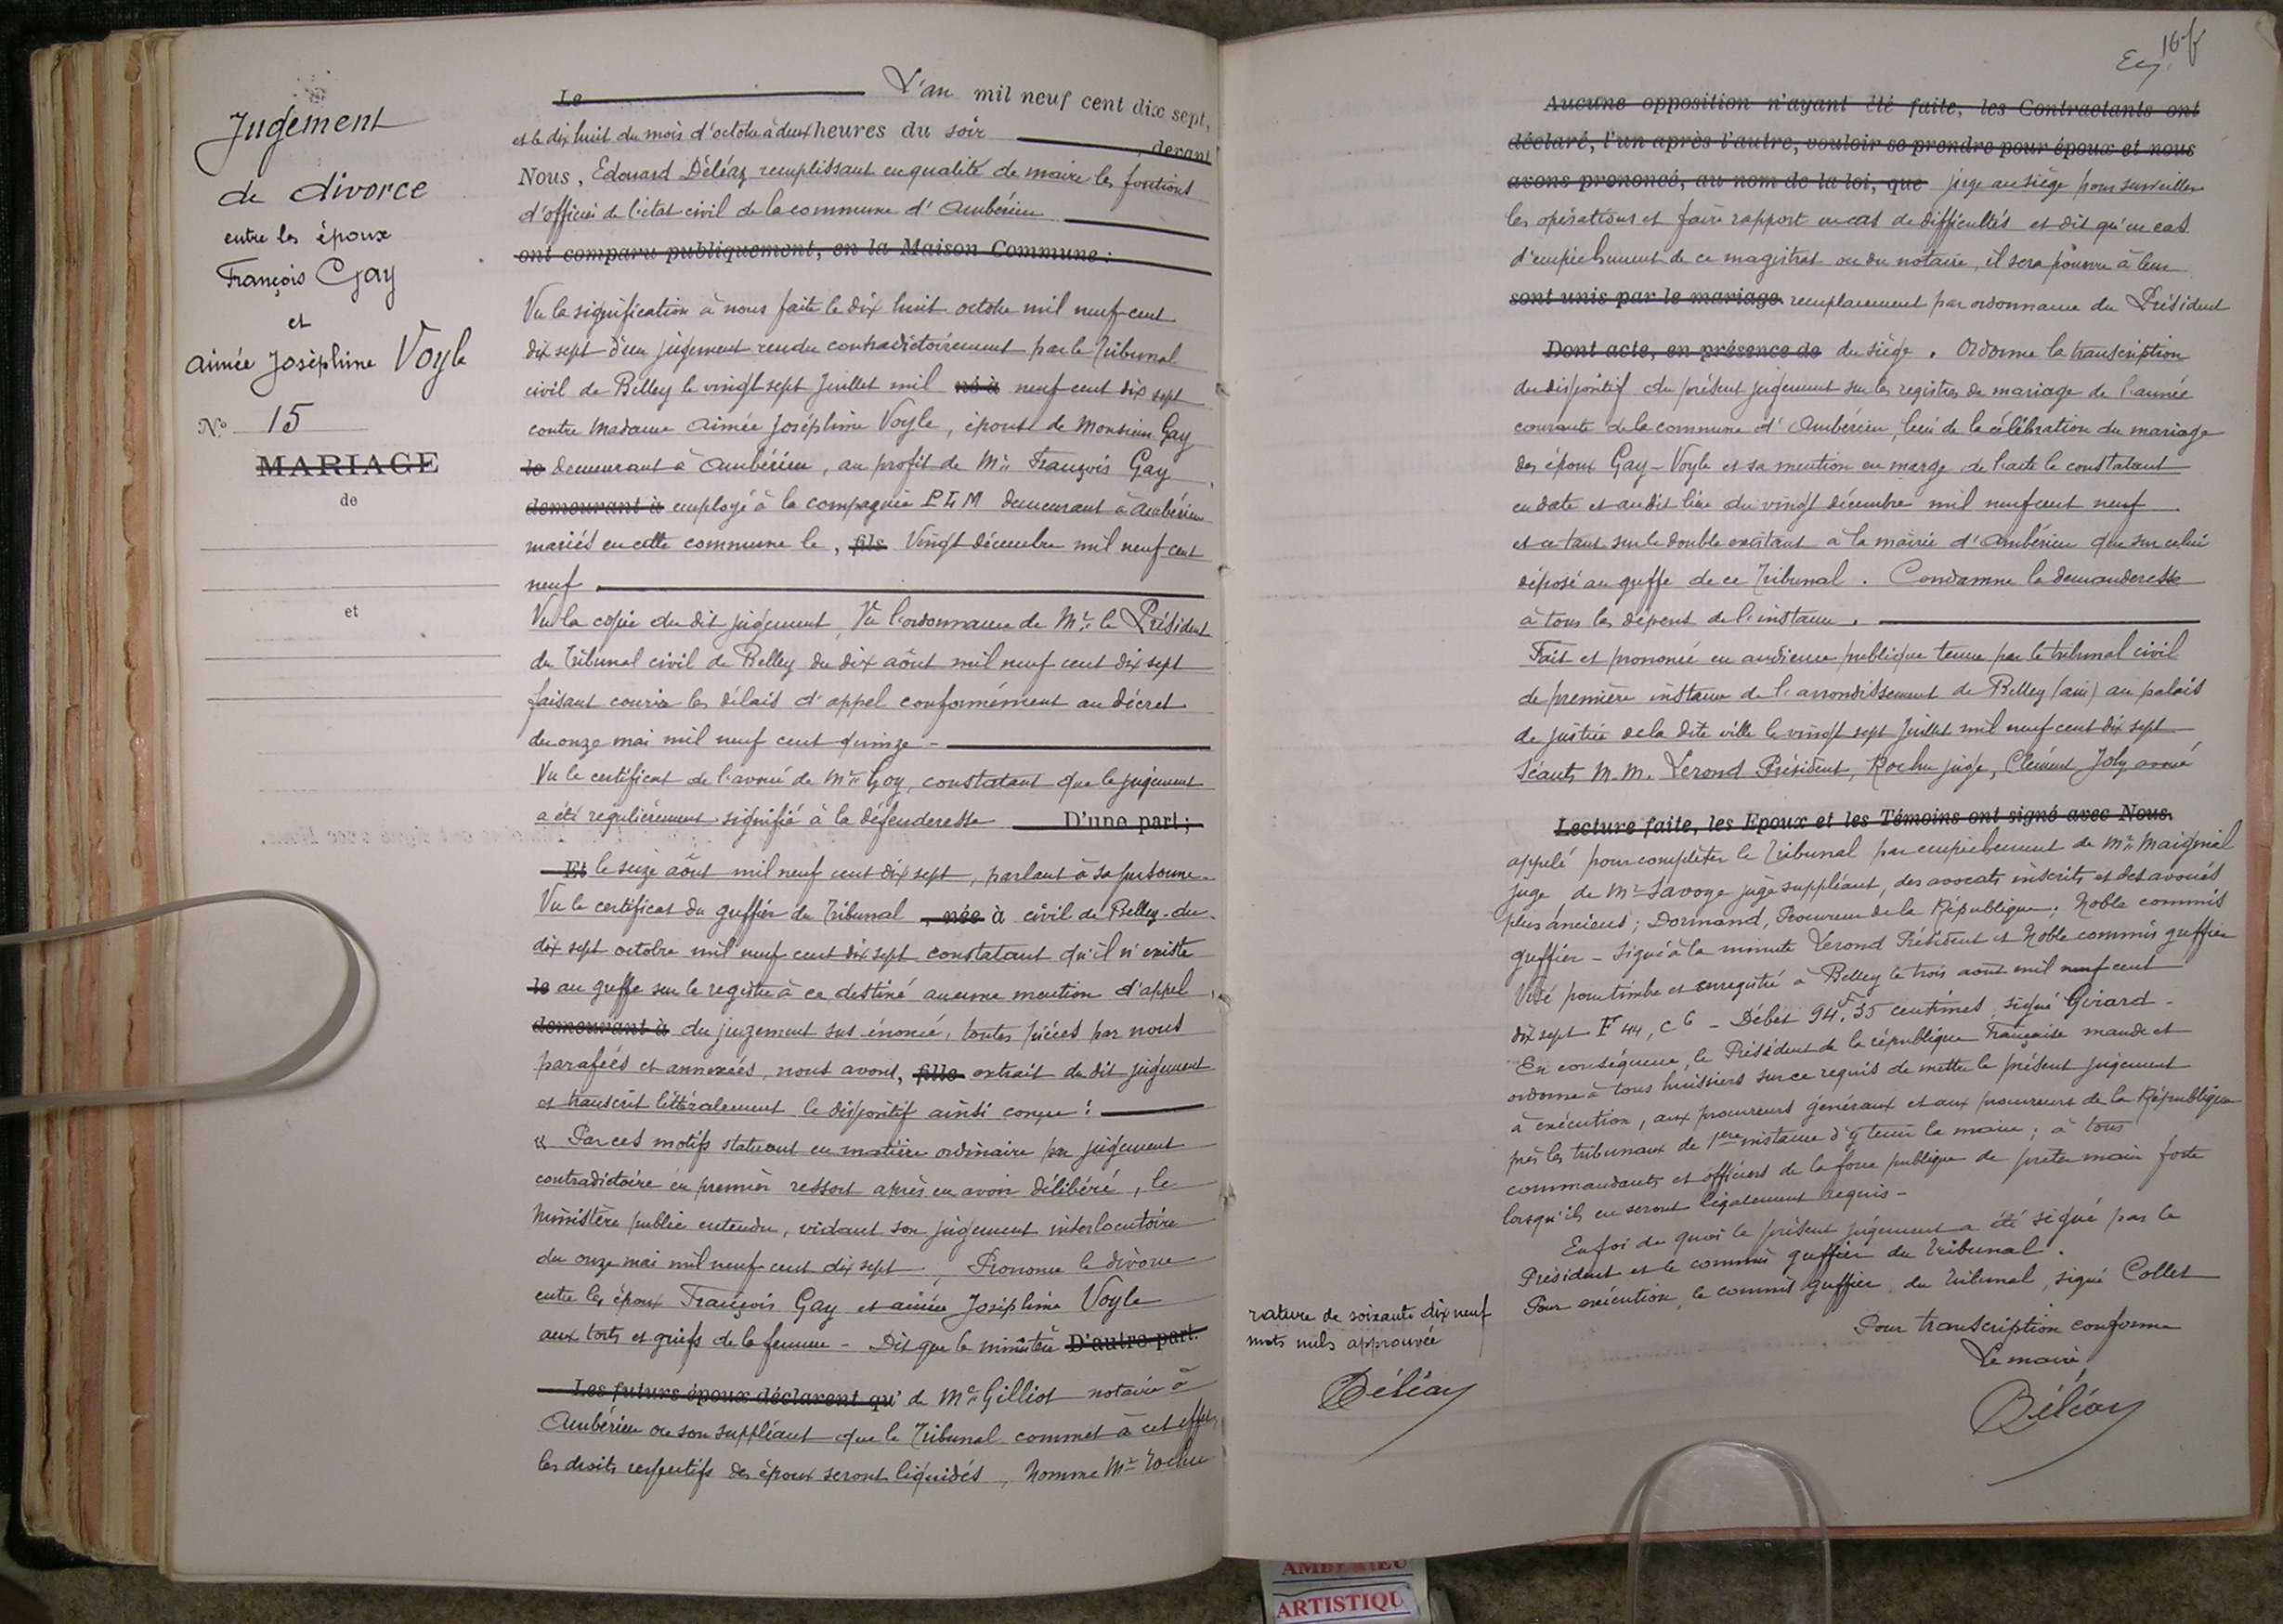 Jugement
de divorce
entre les époux
François Gay
et
Aimée Joséphine Voyle
N° 15
MARIAGE
de
et
Le L'an mil neuf cent dix sept,
et le dix huit du mois d'octobre à deux heures du soir devant
Nous, Edouard Déléaz remplissant en qualité de maire les fontions
d'officier de l'état civil de la commune d'Ambérieu
ont comparu publiquement, en la Maison Commune :
Vu la signification à nous faite le dix huit octobre mil neuf cent
dix sept d'un jugement rendu contradictoirement par le Tribunal
civil de Belley le vingt sept Juillet mil né à neuf cent dix sept
contre Madame Aimée Joséphine Voyle, épouse de Monsieur Gay
le demeurant à Ambérieu, au profit de Mr François Gay
demeurant à employé à la compagnie PLM demeurant à Ambérieu
mariés en cette commune le, fils Vingt décembre mil neuf cent
neuf
Vu la copie du dit jugement, Vu l'ordonnance de Mr le Président
du Tribunal civil de Belley du dix août mil neuf cent dix sept
faisant courir les délais d'appel conformément au décret
du onze mai mil neuf cent quinze -
Vu le certificat de l'avoué de Mr Goy, constatant que le jugement
a été régulièrement signifié à la défenderesse D'une part ;
Et le seize août mil neuf cent dix sept, parlant à sa personne
Vu le certificat du greffier du Tribunal , née à civil de Belley du
dix sept octobre mil neuf cent dix sept constatant qu'il n'existe
le au greffe sur le registre à ce destiné aucune mention d'appel
demeurant à du jugement sus énoncé, toutes pièces par nous
parafées et annexées, nous avons, fille extrait du dit jugement
et transcrit littéralement le dispositif ainsi conçu :
« Par ces motifs statuant en matière ordinaire par jugement
contradictoire en premier ressort après en avoir délibéré, le
Ministère public entendu, vidant son jugement interlocutoire
du onze mai mil neuf cent dix sept, Prononce le divorce
entre les époux François Gay et aimée Joséphine Voyle
aux torts et griefs de la femme - Dit que le ministère D'autre part.
Les futurs époux déclarent qu' de Me Gilliot notaire à
Ambérieu ou son suppléant que le Tribunal commet à cet effet,
les droits respectifs des époux seront liquidés, Nomme Mr Rochu
16
Aucune opposition n'ayant été faite, les Contractants ont
déclaré, l'un après l'autre, vouloir se prendre pour époux et nous
avons prononcé, au nom de la loi, que juge au siège pour surveiller
les opérations et faire rapport en cas de difficultés et dit qu'en cas
d'empêchement de ce magistrat ou du notaire, il sera pourvu à leur
sont unis par le mariage. remplacement par ordonnance du Président
Dont acte, en présence de du siège. Ordonne la transcription
du dispositif du présent jugement sur les registres de mariage de l'année
courante de la commune d'Ambérieu, lieu de la célébration du mariage
des époux Gay-Voyle et sa mention en marge de l'acte le constatant
en date et au dit lieu du vingt décembre mil neuf cent neuf
et ce tant sur le double existant à la mairie d'Ambérieu que sur celui
déposé au greffe de ce Tribunal. Condamne la demanderesse
à tous les dépens de l'instance.
Fait et prononcé en audience publique tenue par le tribunal civil
de première instance de l'arrondissement de Belley (ain) au palais
de justice de la dite ville le vingt sept Juillet mil neuf cent dix sept
Séants M.M. Verond Président, Rochu juge, Clément Joly avoué
Lecture faite, les Epoux et les Témoins ont signé avec Nous.
appelé pour compléter le Tribunal par empêchement de Mr Maignial
juge, de Mr Savoge juge suppléant, des avocats inscrits et des avoués
plus anciens ; Dormand, Procureur de la République ; Noble commis
greffier - Signé à la minute Verond Président et Noble commis greffier
Visé pour timbre et enregistré à Belley le trois août mil neuf cent
dix sept F° 44, c 6 - Débet 94f.35 centimes, signé Girard -
En conséquence, le Président de la république Française mande et
ordonne à tous huissiers sur ce requis de mettre le présent jugement
à exécution, aux procureurs généraux et aux procureurs de la République
près les tribunaux de 1ère instance d'y tenir la main ; à tous
commandants et officiers de la force publique de prêter main forte
lorsqu'ils en seront légalement requis -
En foi de quoi le présent jugement a été signé par le
Président et le commis greffier du Tribunal.
Pour exécution, le commis greffier du Tribunal, signé Collet
Pour transcription conforme
Le maire,
Déléaz
rature de soixante dix neuf
mots nuls approuvée
Déléaz
AMBERIEU
ARTISTIQU